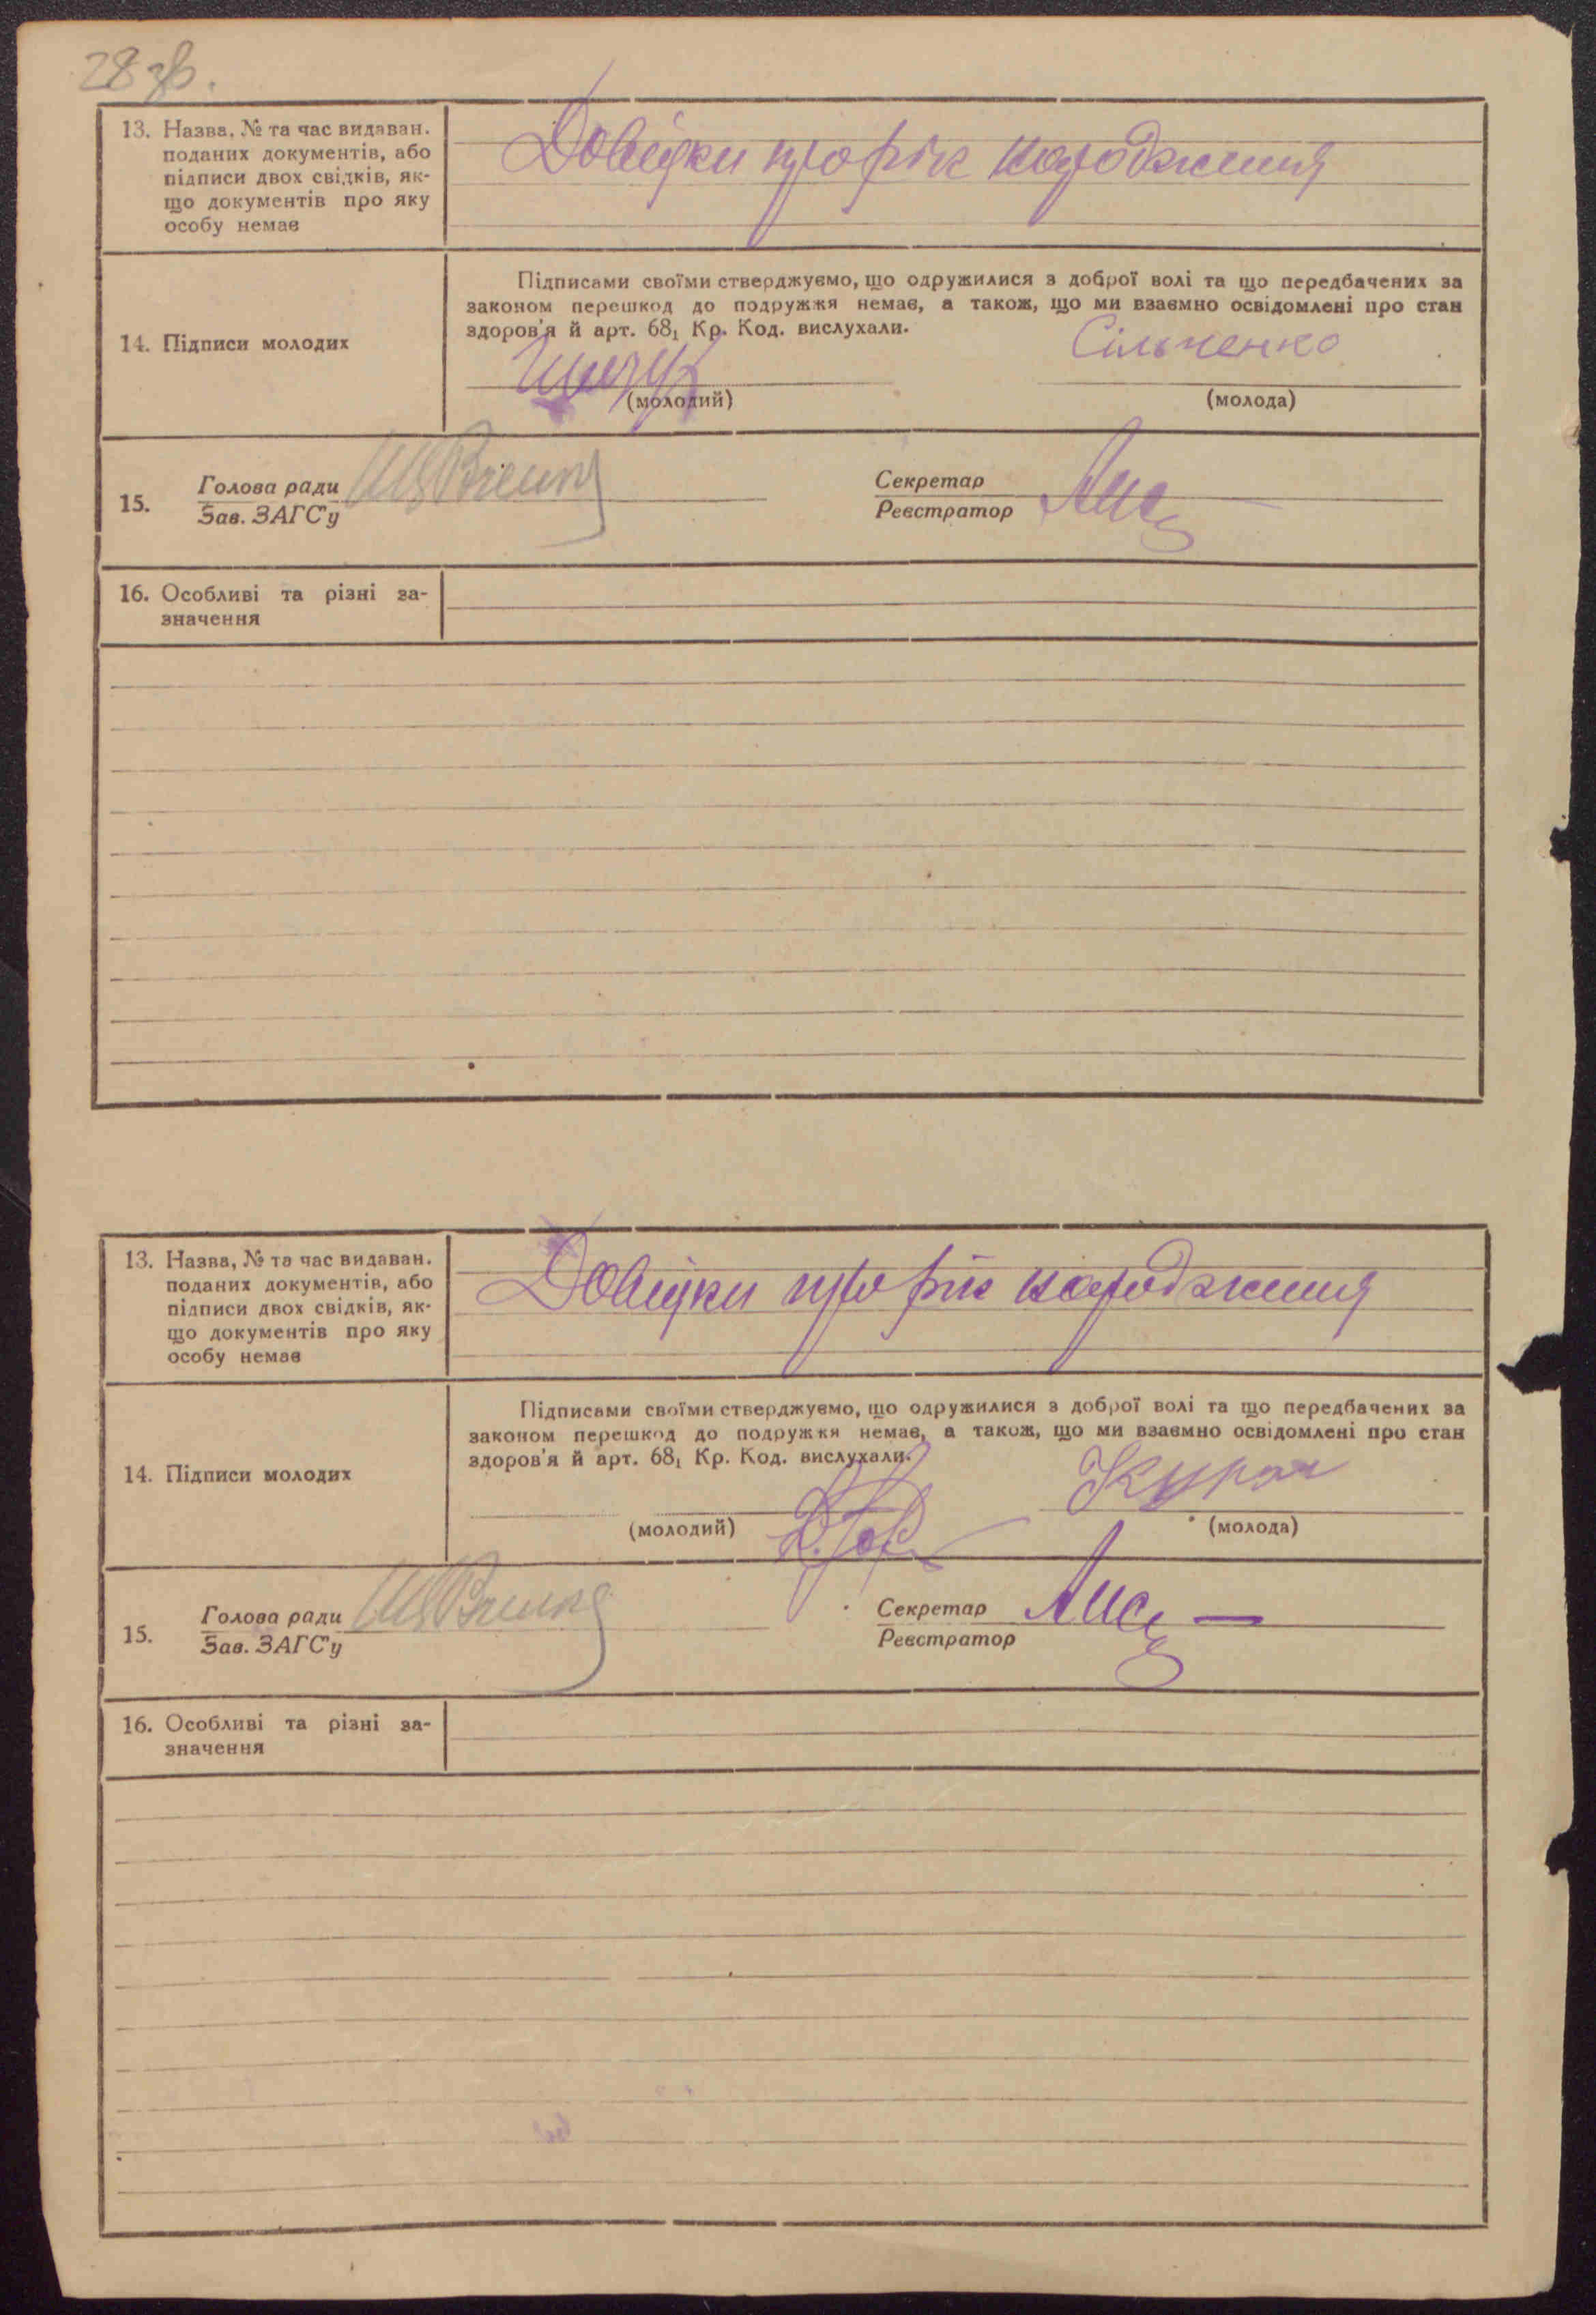 28 зв.
13. Назва, № та час видаван.
поданих документів, або
підписи двох свідків, як-
що документів про яку
особу немає
Довідки про рік народження
14. Підписи молодих
Підписами своїми стверджуємо, що одружилися з доброї волі та що передбачених за
законом перешкод до подружжя немає, а також, що ми взаємно освідомлені про стан
здоров'я й арт. 68₁ Кр. Код. вислухали.
Сільченко
(молодий)
(молода)
15.
Голова ради
Зав. ЗАГС'у
Секретар
Реєстратор
16. Особливі та різні за-
значення
13. Назва, № та час видаван.
поданих документів, або
підписи двох свідків, як-
що документів про яку
особу немає
Довідки про рік народження
14. Підписи молодих
Підписами своїми стверджуємо, що одружилися з доброї волі та що передбачених за
законом перешкод до подружжя немає, а також, що ми взаємно освідомлені про стан
здоров'я й арт. 68₁ Кр. Код. вислухали.
(молодий)
(молода)
15.
Голова ради
Зав. ЗАГС'у
Секретар
Реєстратор
16. Особливі та різні за-
значення